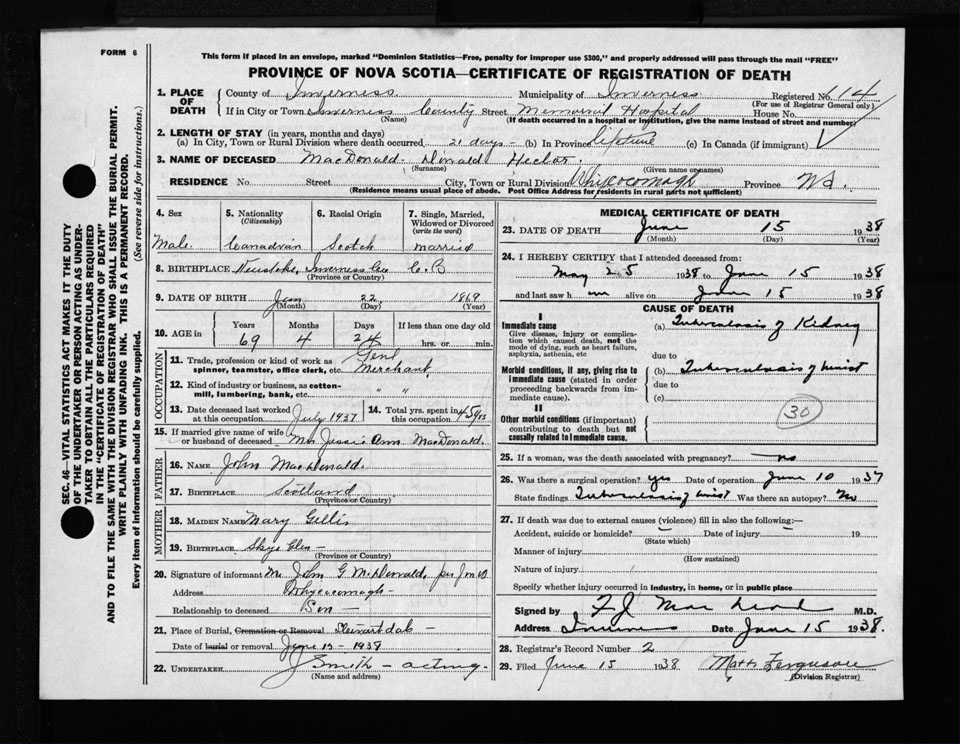 FORM 6
This form if placed in an envelope, marked "Dominion Statistics—Free, penalty for improper use $300," and properly addressed will pass through the mail "FREE"
PROVINCE OF NOVA SCOTIA—CERTIFICATE OF REGISTRATION OF DEATH
SEC. 46—VITAL STATISTICS ACT MAKES IT THE DUTY
OF THE UNDERTAKER OR PERSON ACTING AS UNDER-
TAKER TO OBTAIN ALL THE PARTICULARS REQUIRED
IN THE "CERTIFICATE OF REGISTRATION OF DEATH"
AND TO FILE THE SAME WITH THE DIVISION REGISTRAR WHO SHALL ISSUE THE BURIAL PERMIT.
WRITE PLAINLY WITH UNFADING INK. THIS IS A PERMANENT RECORD.
Every item of information should be carefully supplied. (See reverse side for instructions.)
1. PLACE OF DEATH
County of Inverness Municipality of Inverness Registered No. 614
(For use of Registrar General only)
If in City or Town Inverness County Street Memorial Hospital House No.
(Name) (If death occurred in a hospital or institution, give the name instead of street and number)
2. LENGTH OF STAY (in years, months and days)
(a) In City, Town or Rural Division where death occurred 21 days - (b) In Province lifetime (c) In Canada (if immigrant)
3. NAME OF DECEASED MacDonald - Donald Hector.
(Surname) (Given name or names)
RESIDENCE No. Street City, Town or Rural Division Whycocomagh Province N.S.
(Residence means usual place of abode. Post Office Address for residents in rural parts not sufficient)
4. Sex
Male
5. Nationality
(Citizenship)
Canadian
6. Racial Origin
Scotch
7. Single, Married,
Widowed or Divorced
(write the word)
married
8. BIRTHPLACE Inverness Co. C.B
(Province or Country)
9. DATE OF BIRTH Jan 22 1869
(Month) (Day) (Year)
10. AGE in
Years Months Days If less than one day old
69 4 24 hrs. or min.
OCCUPATION
11. Trade, profession or kind of work as
spinner, teamster, office clerk, etc. Genl Merchant
12. Kind of industry or business, as cotton-
mill, lumbering, bank, etc. " "
13. Date deceased last worked
at this occupation July 1937
14. Total yrs. spent in
this occupation 45 yrs
15. If married give name of wife
or husband of deceased Mrs Jessie Ann MacDonald.
FATHER
16. NAME John MacDonald.
17. BIRTHPLACE Scotland
(Province or Country)
MOTHER
18. MAIDEN NAME Mary Gillis
19. BIRTHPLACE Skye Glen -
(Province or Country)
20. Signature of informant Mr John G McDonald,
Address Whycocomagh -
Relationship to deceased Son -
21. Place of Burial, Cremation or Removal
Date of burial or removal June 1938
22. UNDERTAKER J Smith - acting.
(Name and address)
MEDICAL CERTIFICATE OF DEATH
23. DATE OF DEATH June 15 1938
(Month) (Day) (Year)
24. I HEREBY CERTIFY that I attended deceased from:
May 25 1938 to June 15 1938
and last saw him alive on June 15 1938
CAUSE OF DEATH
I
Immediate cause
Give disease, injury or complica-
tion which caused death, not the
mode of dying, such as heart failure,
asphyxia, asthenia, etc
(a) Tuberculosis of Kidney
due to
Morbid conditions, if any, giving rise to
immediate cause (stated in order
proceeding backwards from im-
mediate cause).
(b) Tuberculosis of Wrist
due to
(c)
30
II
Other morbid conditions (if important)
contributing to death but not
causally related to immediate cause.
25. If a woman, was the death associated with pregnancy? no
26. Was there a surgical operation? yes Date of operation June 10 1937
State findings Tuberculosis of wrist Was there an autopsy? No
27. If death was due to external causes (violence) fill in also the following:—
Accident, suicide or homicide? Date of injury 19
(State which)
Manner of injury
(How sustained)
Nature of injury
Specify whether injury occurred in industry, in home, or in public place
Signed by M.D.
Address Inverness Date June 15 1938.
28. Registrar's Record Number 2
29. Filed June 15 1938 Ferguson
(Division Registrar)